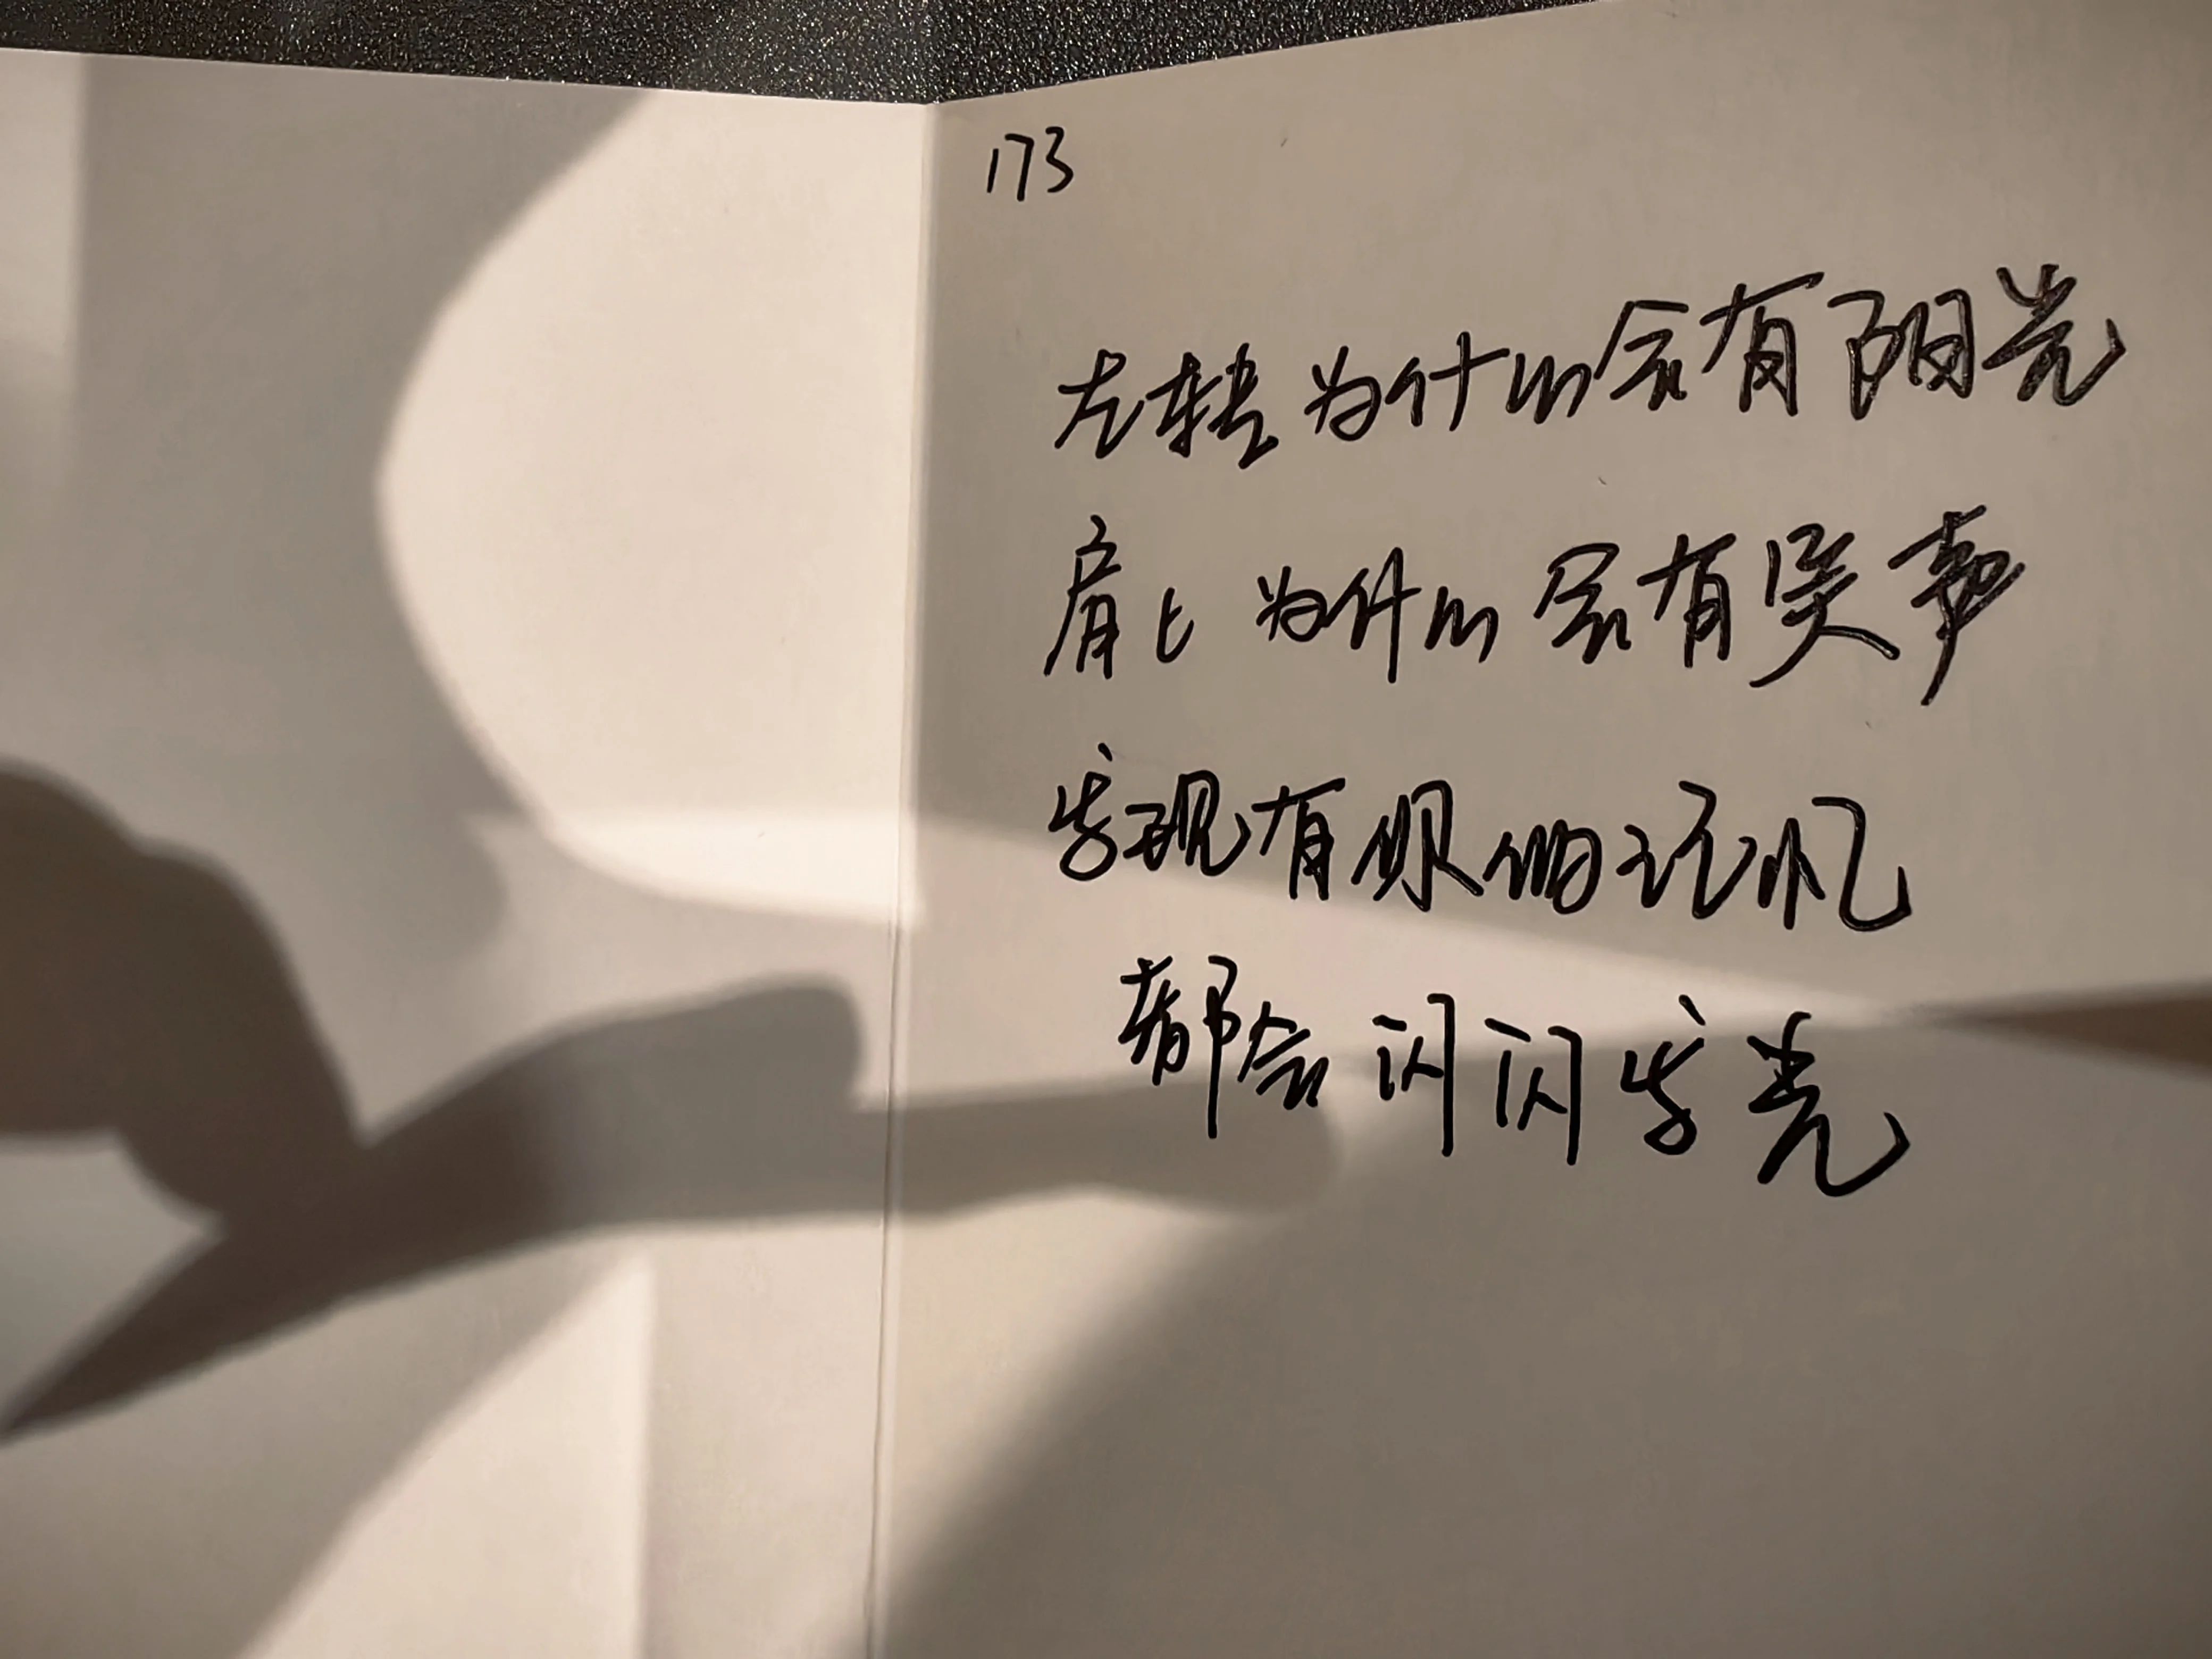 173
左转为什么会有阳光
肩上为什么会有哭声
发现有眼的记忆
都会闪闪发光